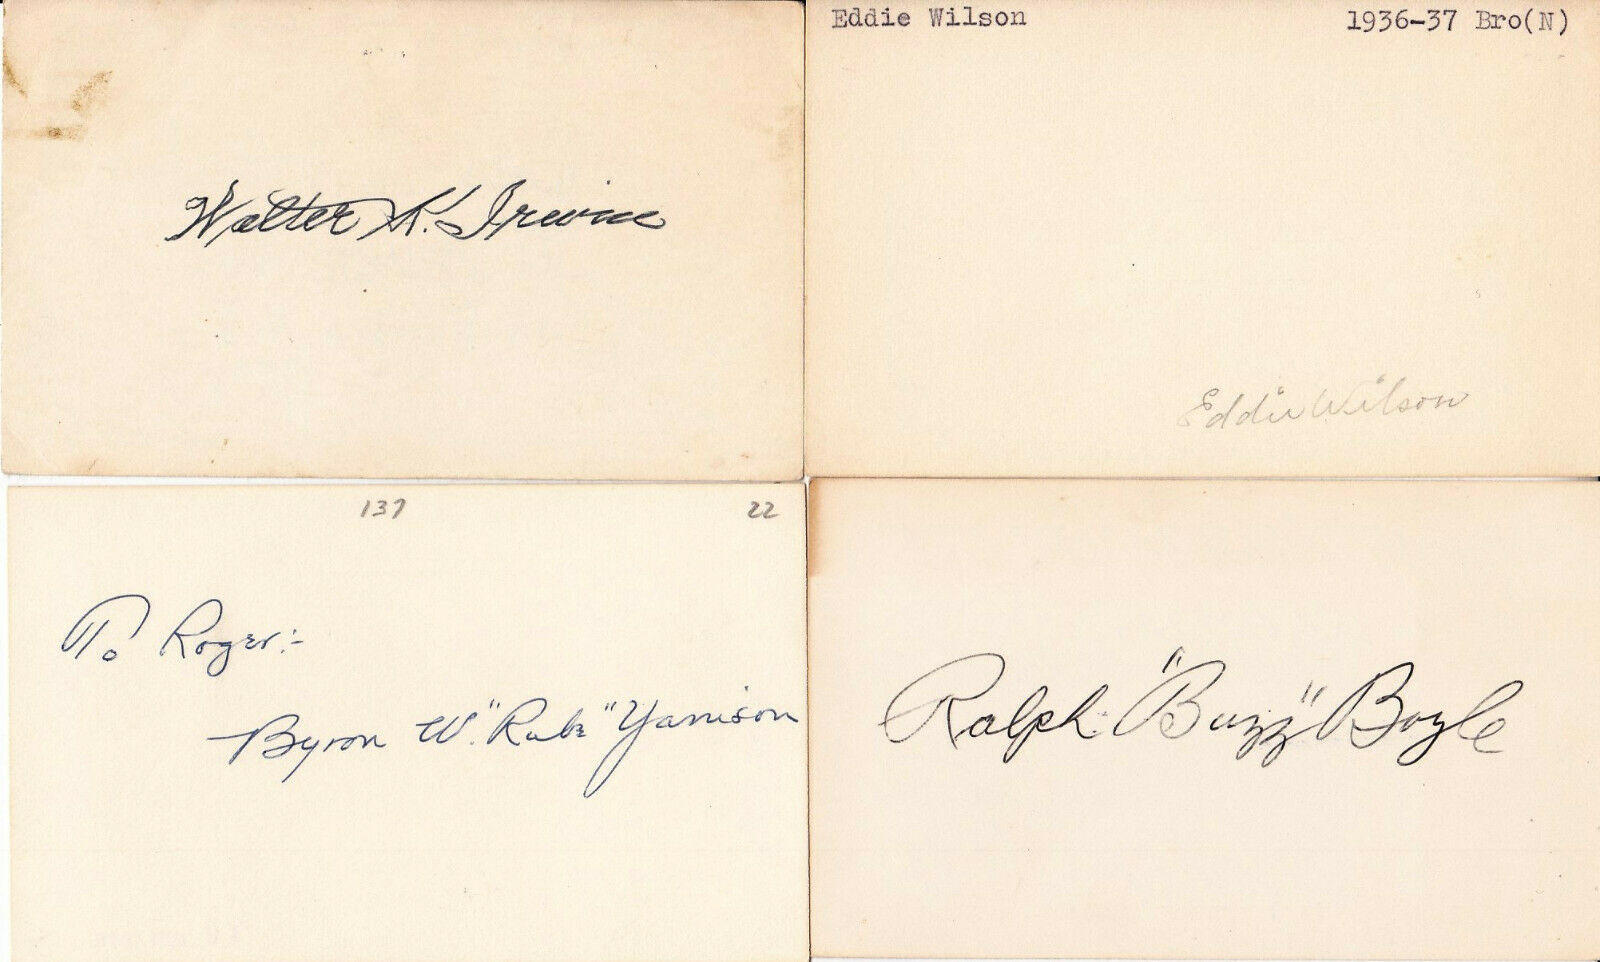 Walter K. Irwin
Eddie Wilson 1936-37 Bro(N)
Eddie Wilson
137 22
To Roger:-
Byron W. "Rube" Yarrison
Ralph "Buzz" Boyle